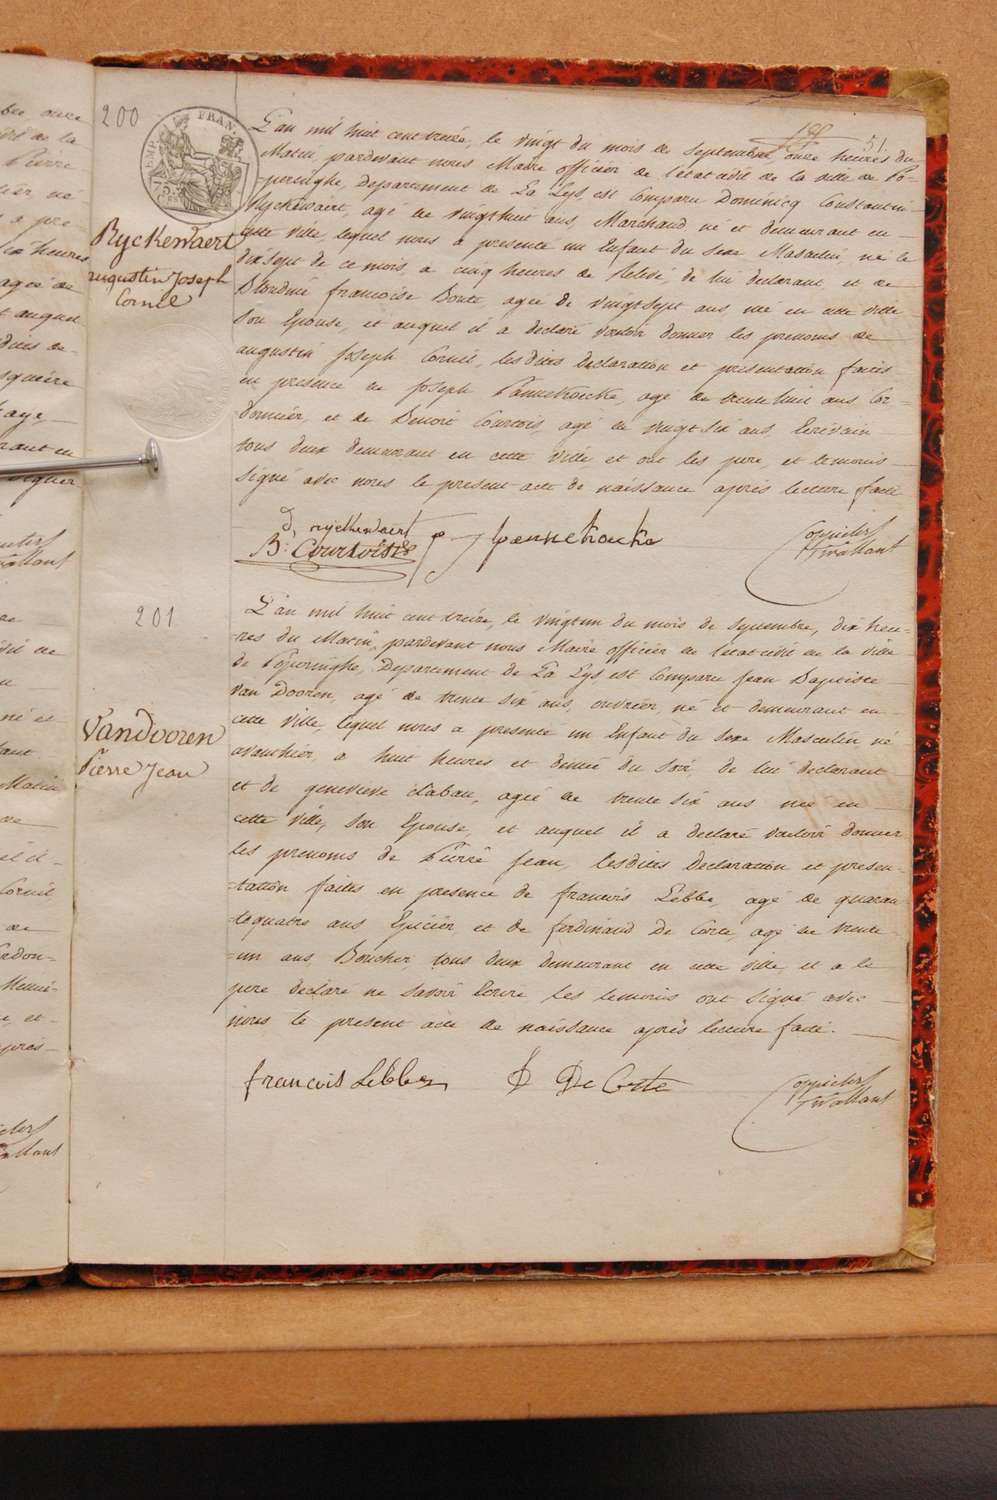 200
51.
Ryckewaert
augustin Joseph
Cornil
L'an mil huit cent treize, le vingt du mois de Septembre, onze heures du
Matin, pardevant nous Maire officier de l'état civil de la ville de Po-
peringhe, Departement de La Lys, est Comparu Dominicq Constantin
Ryckewaert, agé de vingthuit ans, Marchand né et demeurant en
cette ville lequel nous a presenté un Enfant du Sexe Masculin, né le
dixsept de ce mois, a cinq heures de relevé, de lui declarant et de
Blondine francoise Boute, agée de vingtsept ans, née en cette ville
Son Epouse, et auquel il a declaré vouloir donner les prenoms de
augustin Joseph Cornil, lesdites declaration et presentation faites
en presence de Joseph Pannekoucke, agé de trente huit ans Cor-
donnier, et de Benoit Courtois, agé de vingtsix ans Ecrivain
tous deux demeurant en cette ville et ont les pere, et temoins
Signé avec nous le present acte de naissance après lecture faite
d, ryckewaert
B: Courtois
J pannekoucke
201
Vandooren
Pierre Jean
L'an mil huit cent treize, le vingtun du mois de Septembre, dix heu-
-res du Matin, pardevant nous Maire officier de l'etat civil de la ville
de Poperinghe, Departement de La Lys est Comparu Jean Baptiste
Van Dooren, agé de trente six ans, ouvrier, né et demeurant en
cette ville, lequel nous a presenté un Enfant du Sexe Masculin né
avanthier, a huit heures et demie du Soir, de lui declarant
et de genevieve Claban, agée de trente six ans née en
cette ville, Son Epouse, et auquel il a declaré vouloir donner
les prenoms de Pierre Jean, lesdites Declaration et presen-
-tation faites en presence de francois Lebbe, agé de quaran
-tequatre ans Epicier, et de ferdinand De Corte, agé de trente
-un ans, Boucher, tous deux demeurant en cette ville, et a le
pere declaré ne savoir Ecrire les temoins ont Signé avec
nous le present acte de naissance après lecture faite.
francois Lebbe
De Corte